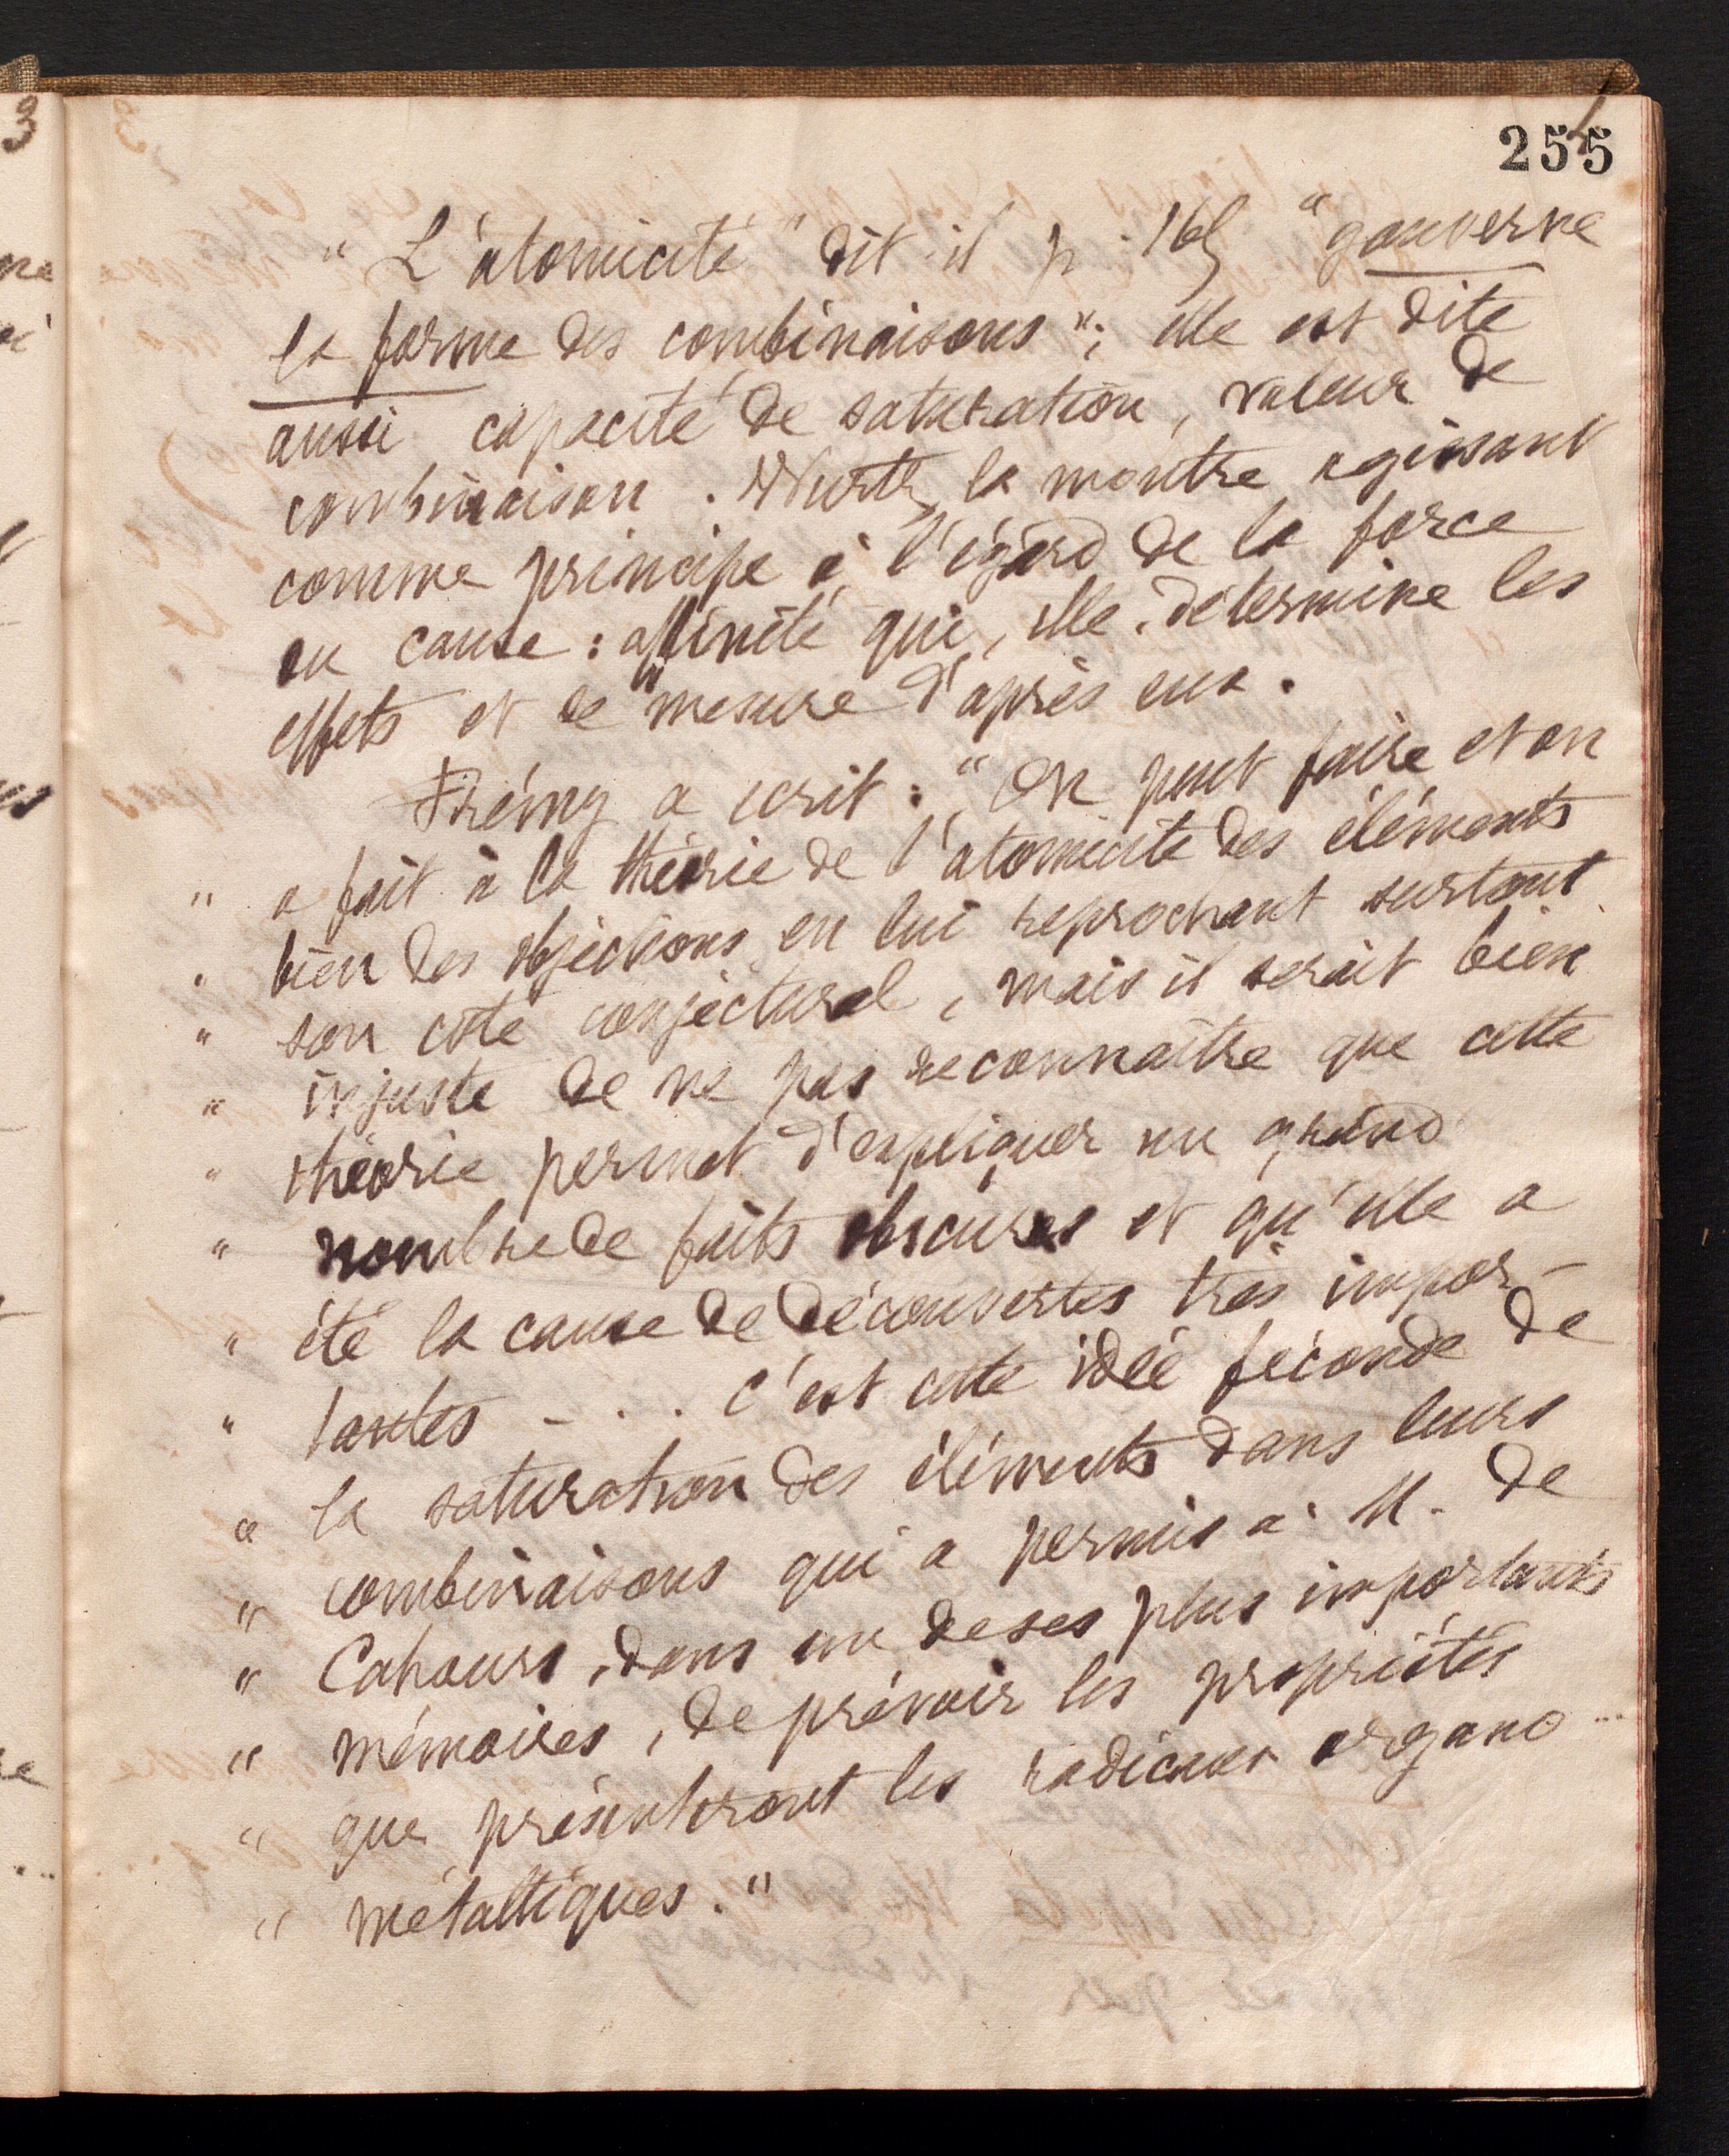 255
" L'atomicité" dit-il p. 165 "gouverne
la forme des combinaisons"; elle est dite
aussi capacité de saturation, valeur de
combinaison. Wurtz la montre agissant
comme principe à l'égard de la force
ou cause : affinité qui, elle, détermine les
effets et se mesure d'après eux.
Frémy a écrit : " On peut faire et on
" a fait à la théorie de l'atomicité des éléments
" bien des objections en lui reprochant surtout
" son côté conjectural, mais il serait bien
" injuste de ne pas reconnaître que cette
" théorie permet d'expliquer un grand
" nombre de faits obscurs et qu'elle a
" été la cause de découvertes très impor-
" tantes - . . . c'est cette idée féconde de
" la saturation des éléments dans leurs
" combinaisons qui a permis à M. de
" Cahours, dans un de ses plus importants
" mémoires, de prévoir les propriétés
" que présenteront les radicaux organo-
" métalliques."
3